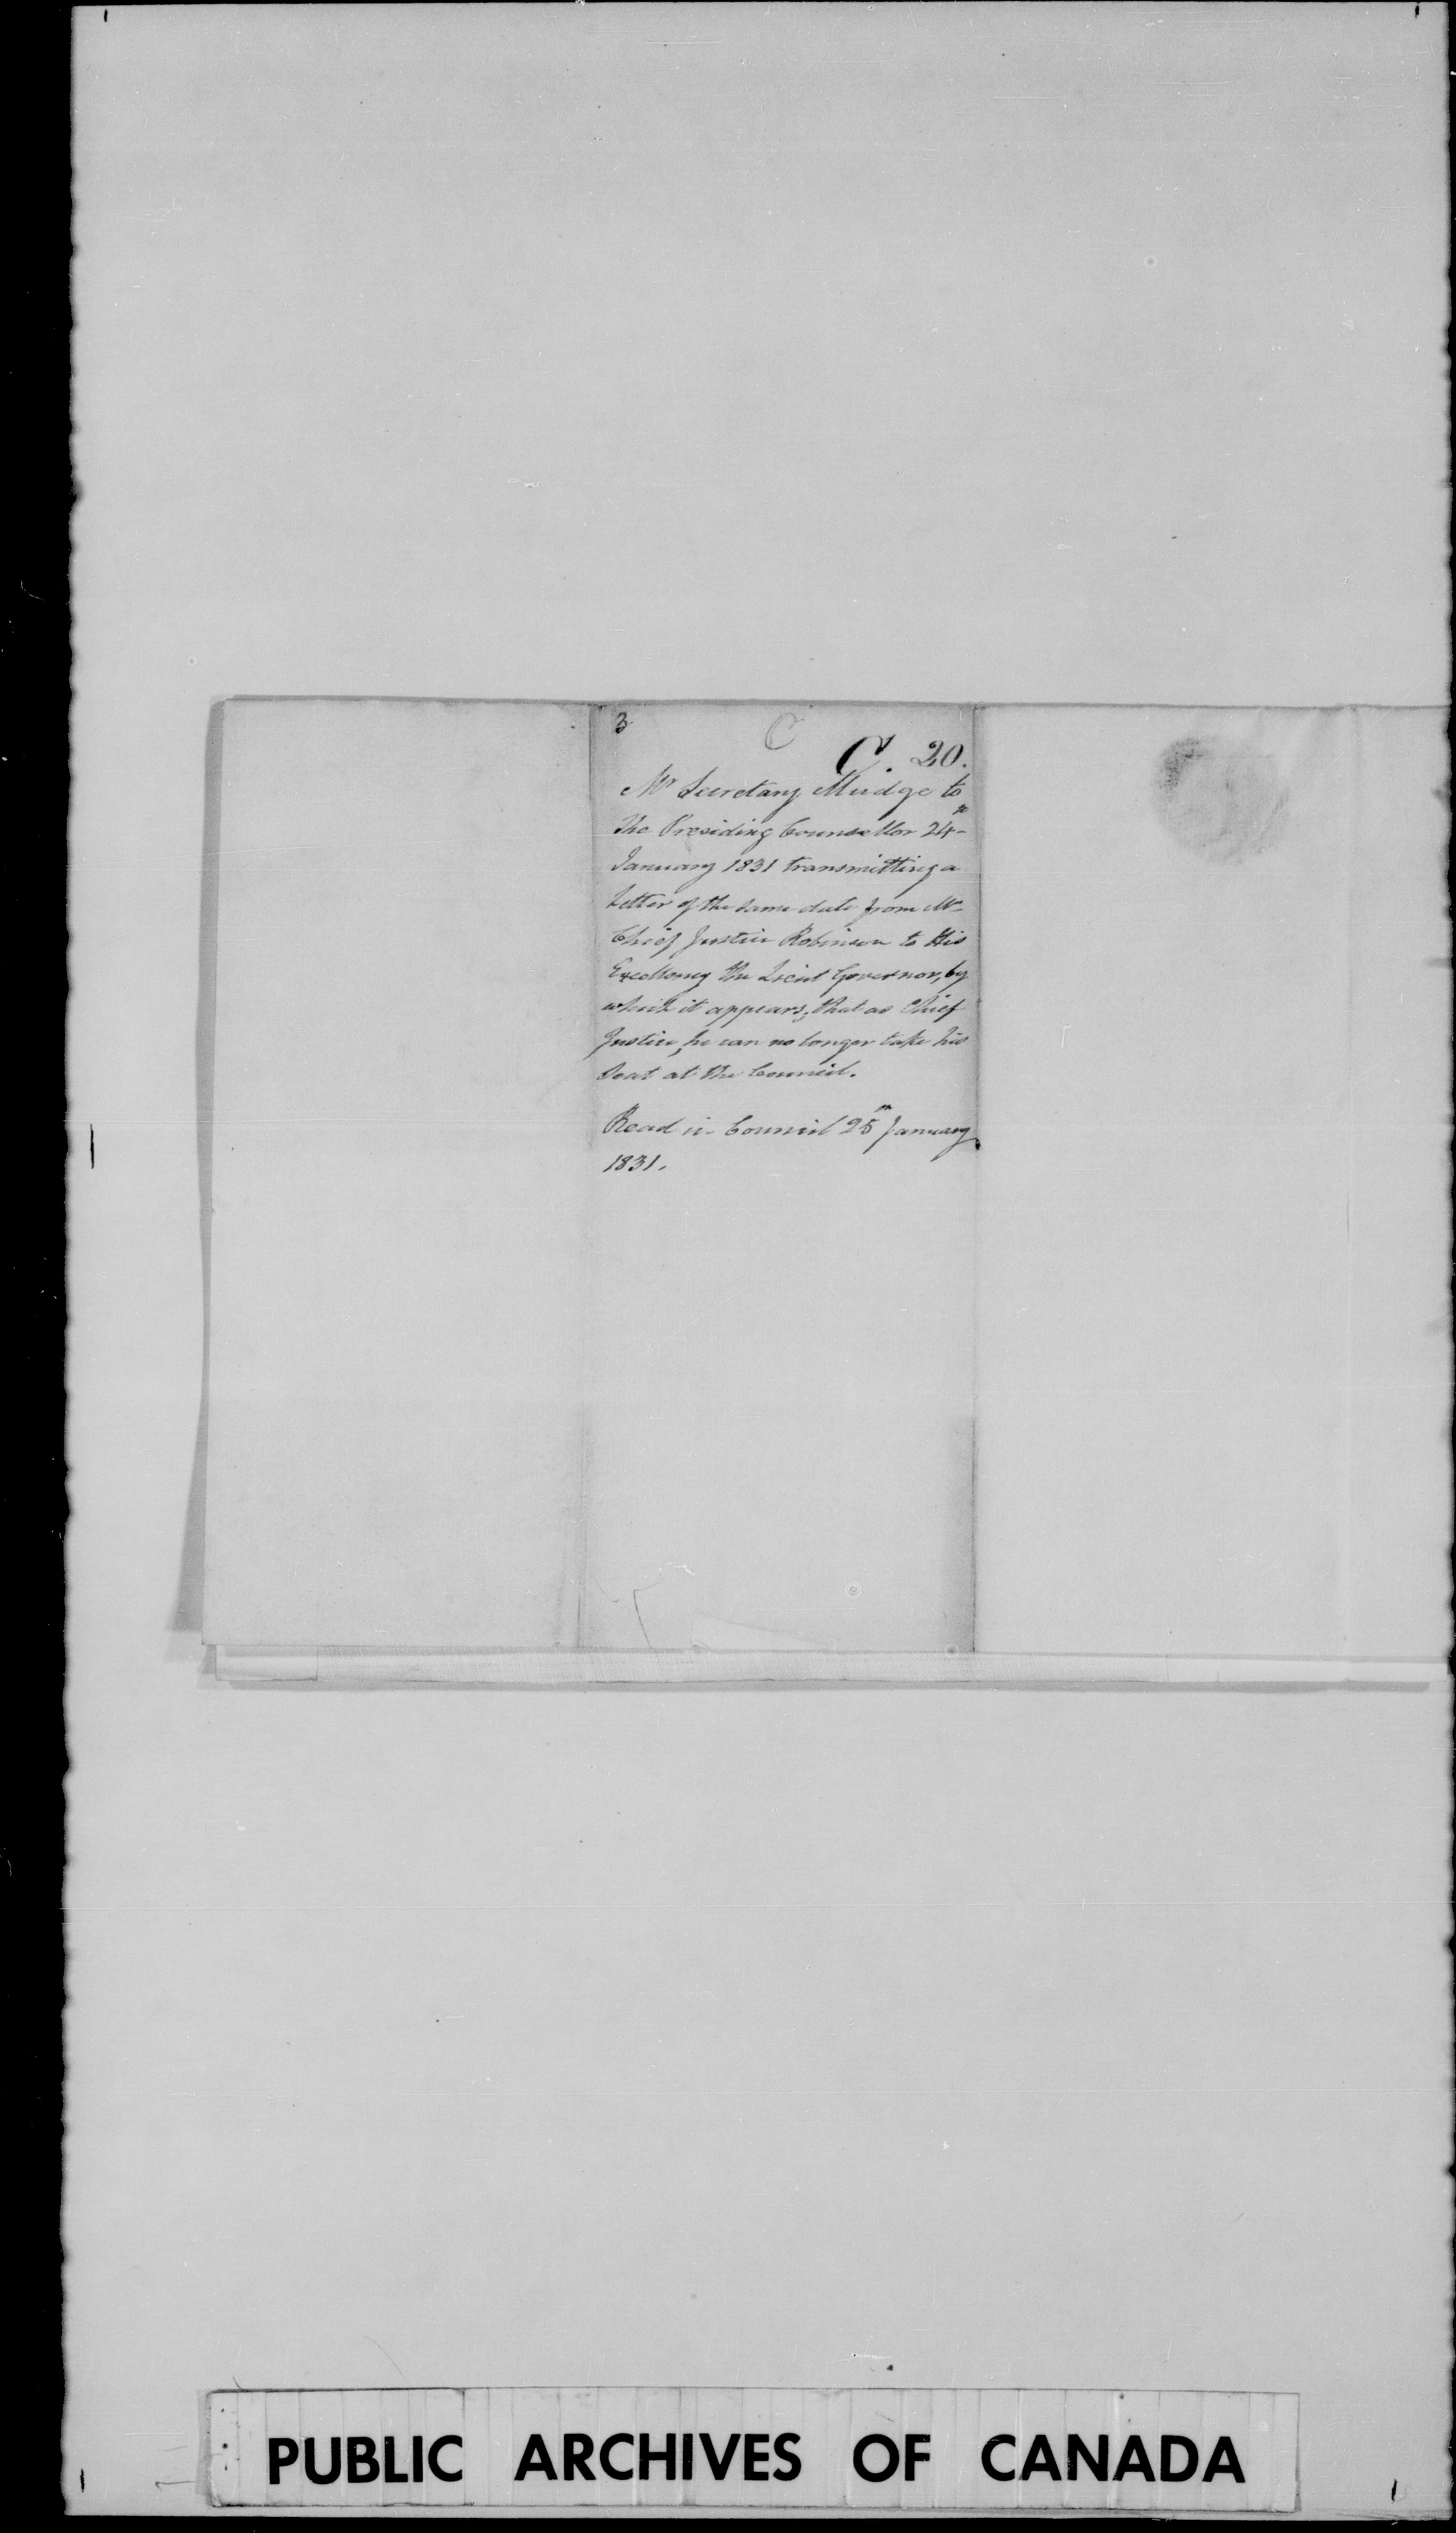 3
C
C. 20.
Mr Secretary Mudge to
the Presiding Counsellor 24th
January 1831 transmitting a
Letter of the same date from Mr
Chief Justice Robinson to His
Excellency the Lieut Governor, by
which it appears, that as Chief
Justice, he can no longer take his
Seat at the Council.
Read in Council 25th January
1831.
PUBLIC ARCHIVES OF CANADA